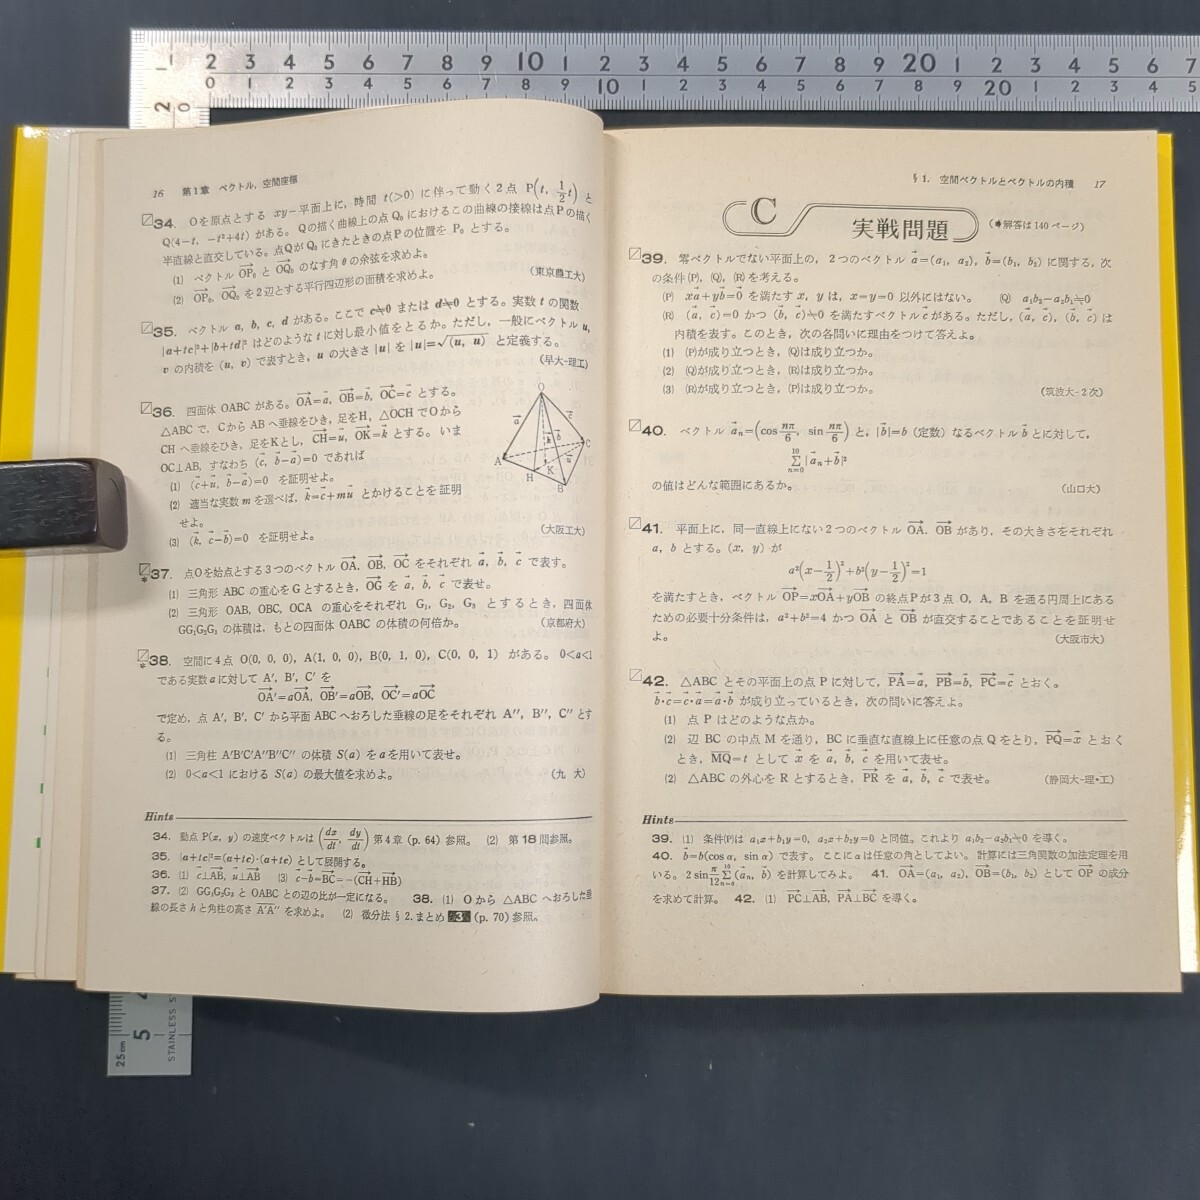 16　第1章　ベクトル，空間座標
34.　Oを原点とする xy−平面上に，時間 t(>0) に伴って動く2点 P(t, 1/2 t) と
Q(4−t, −t²+4t) がある。 Qの描く曲線上の点 Q₀ におけるこの曲線の接線は点Pの描く
半直線と直交している。点Qが Q₀ にきたときの点Pの位置を P₀ とする。
(1)　ベクトル OP₀ と OQ₀ のなす角 θ の余弦を求めよ。
(2)　OP₀, OQ₀ を2辺とする平行四辺形の面積を求めよ。　（東京農工大）
35.　ベクトル a, b, c, d がある。ここで c≠0 または d≠0 とする。実数 t の関数
|a+tc|²+|b+td|² はどのような t に対し最小値をとるか。ただし，一般にベクトル u,
v の内積を (u, v) で表すとき，u の大きさ |u| を |u|=√(u, u) と定義する。
（早大−理工）
36.　四面体 OABC がある。OA=a, OB=b, OC=c とする。
△ABC で，C から AB へ垂線をひき，足をH，△OCH でOから
CH へ垂線をひき，足をKとし，CH=u, OK=k とする。いま
OC⊥AB, すなわち (c, b−a)=0 であれば
(1)　(c+u, b−a)=0 を証明せよ。
(2)　適当な実数 m を選べば，k=c+mu とかけることを証明
せよ。
(3)　(k, c−b)=0 を証明せよ。　（大阪工大）
O
a
c
k
b
u
A
H
K
B
C
37.　点Oを始点とする3つのベクトル OA, OB, OC をそれぞれ a, b, c で表す。
(1)　三角形 ABC の重心をGとするとき，OG を a, b, c で表せ。
(2)　三角形 OAB, OBC, OCA の重心をそれぞれ G₁, G₂, G₃ とするとき，四面体
GG₁G₂G₃ の体積は，もとの四面体 OABC の体積の何倍か。　（京都府大）
38.　空間に4点 O(0, 0, 0), A(1, 0, 0), B(0, 1, 0), C(0, 0, 1) がある。 0<a<1
である実数 a に対して A′, B′, C′ を
OA′=aOA, OB′=aOB, OC′=aOC
で定め，点 A′, B′, C′ から平面 ABC へおろした垂線の足をそれぞれ A″, B″, C″ とす
る。
(1)　三角柱 A′B′C′A″B″C″ の体積 S(a) を a を用いて表せ。
(2)　0<a<1 における S(a) の最大値を求めよ。　（九　大）
Hints
34.　動点 P(x, y) の速度ベクトルは (dx/dt, dy/dt) 第4章 (p. 64) 参照。　(2)　第18問参照。
35.　|a+tc|²=(a+tc)·(a+tc) として展開する。
36.　(1)　c⊥AB, u⊥AB　(3)　c−b=BC=−(CH+HB)
37.　(2)　GG₁G₂G₃ と OABC との辺の比が一定になる。　38.　(1)　O から △ABC へおろした垂
線の長さ h と角柱の高さ A′A″ を求めよ。　(2)　微分法 §2. まとめ 3 (p. 70) 参照。
§1.　空間ベクトルとベクトルの内積　17
C　実戦問題　（解答は140ページ）
39.　零ベクトルでない平面上の，2つのベクトル a=(a₁, a₂), b=(b₁, b₂) に関する，次
の条件(P), (Q), (R)を考える。
(P)　xa+yb=0 を満たす x, y は，x=y=0 以外にはない。　(Q)　a₁b₂−a₂b₁≠0
(R)　(a, c)=0 かつ (b, c)≠0 を満たすベクトル c がある。ただし，(a, c), (b, c) は
内積を表す。このとき，次の各問いに理由をつけて答えよ。
(1)　(P)が成り立つとき，(Q)は成り立つか。
(2)　(Q)が成り立つとき，(R)は成り立つか。
(3)　(R)が成り立つとき，(P)は成り立つか。　（筑波大−2次）
40.　ベクトル aₙ=(cos nπ/6, sin nπ/6) と，|b|=b（定数）なるベクトル b とに対して，
Σ[n=0, 10] |aₙ+b|²
の値はどんな範囲にあるか。　（山口大）
41.　平面上に，同一直線上にない2つのベクトル OA, OB があり，その大きさをそれぞれ
a, b とする。(x, y) が
a²(x−1/2)²+b²(y−1/2)²=1
を満たすとき，ベクトル OP=xOA+yOB の終点Pが3点 O, A, B を通る円周上にある
ための必要十分条件は，a²+b²=4 かつ OA と OB が直交することであることを証明せ
よ。　（大阪市大）
42.　△ABC とその平面上の点Pに対して，PA=a, PB=b, PC=c とおく。
b·c=c·a=a·b が成り立っているとき，次の問いに答えよ。
(1)　点Pはどのような点か。
(2)　辺 BC の中点Mを通り，BC に垂直な直線上に任意の点Qをとり，PQ=x とおく
とき，MQ=t として x を a, b, c を用いて表せ。
(2)　△ABC の外心をRとするとき，PR を a, b, c で表せ。　（静岡大−理・工）
Hints
39.　(1)　条件(P)は a₁x+b₁y=0, a₂x+b₂y=0 と同値。これより a₁b₂−a₂b₁≠0 を導く。
40.　b=b(cos α, sin α) で表す。ここに α は任意の角としてよい。計算には三角関数の加法定理を用
いる。2 sin π/12 Σ[n=0, 10] (aₙ, b) を計算してみよ。　41.　OA=(a₁, a₂), OB=(b₁, b₂) として OP の成分
を求めて計算。　42.　(1)　PC⊥AB, PA⊥BC を導く。
STAINLESS
25cm